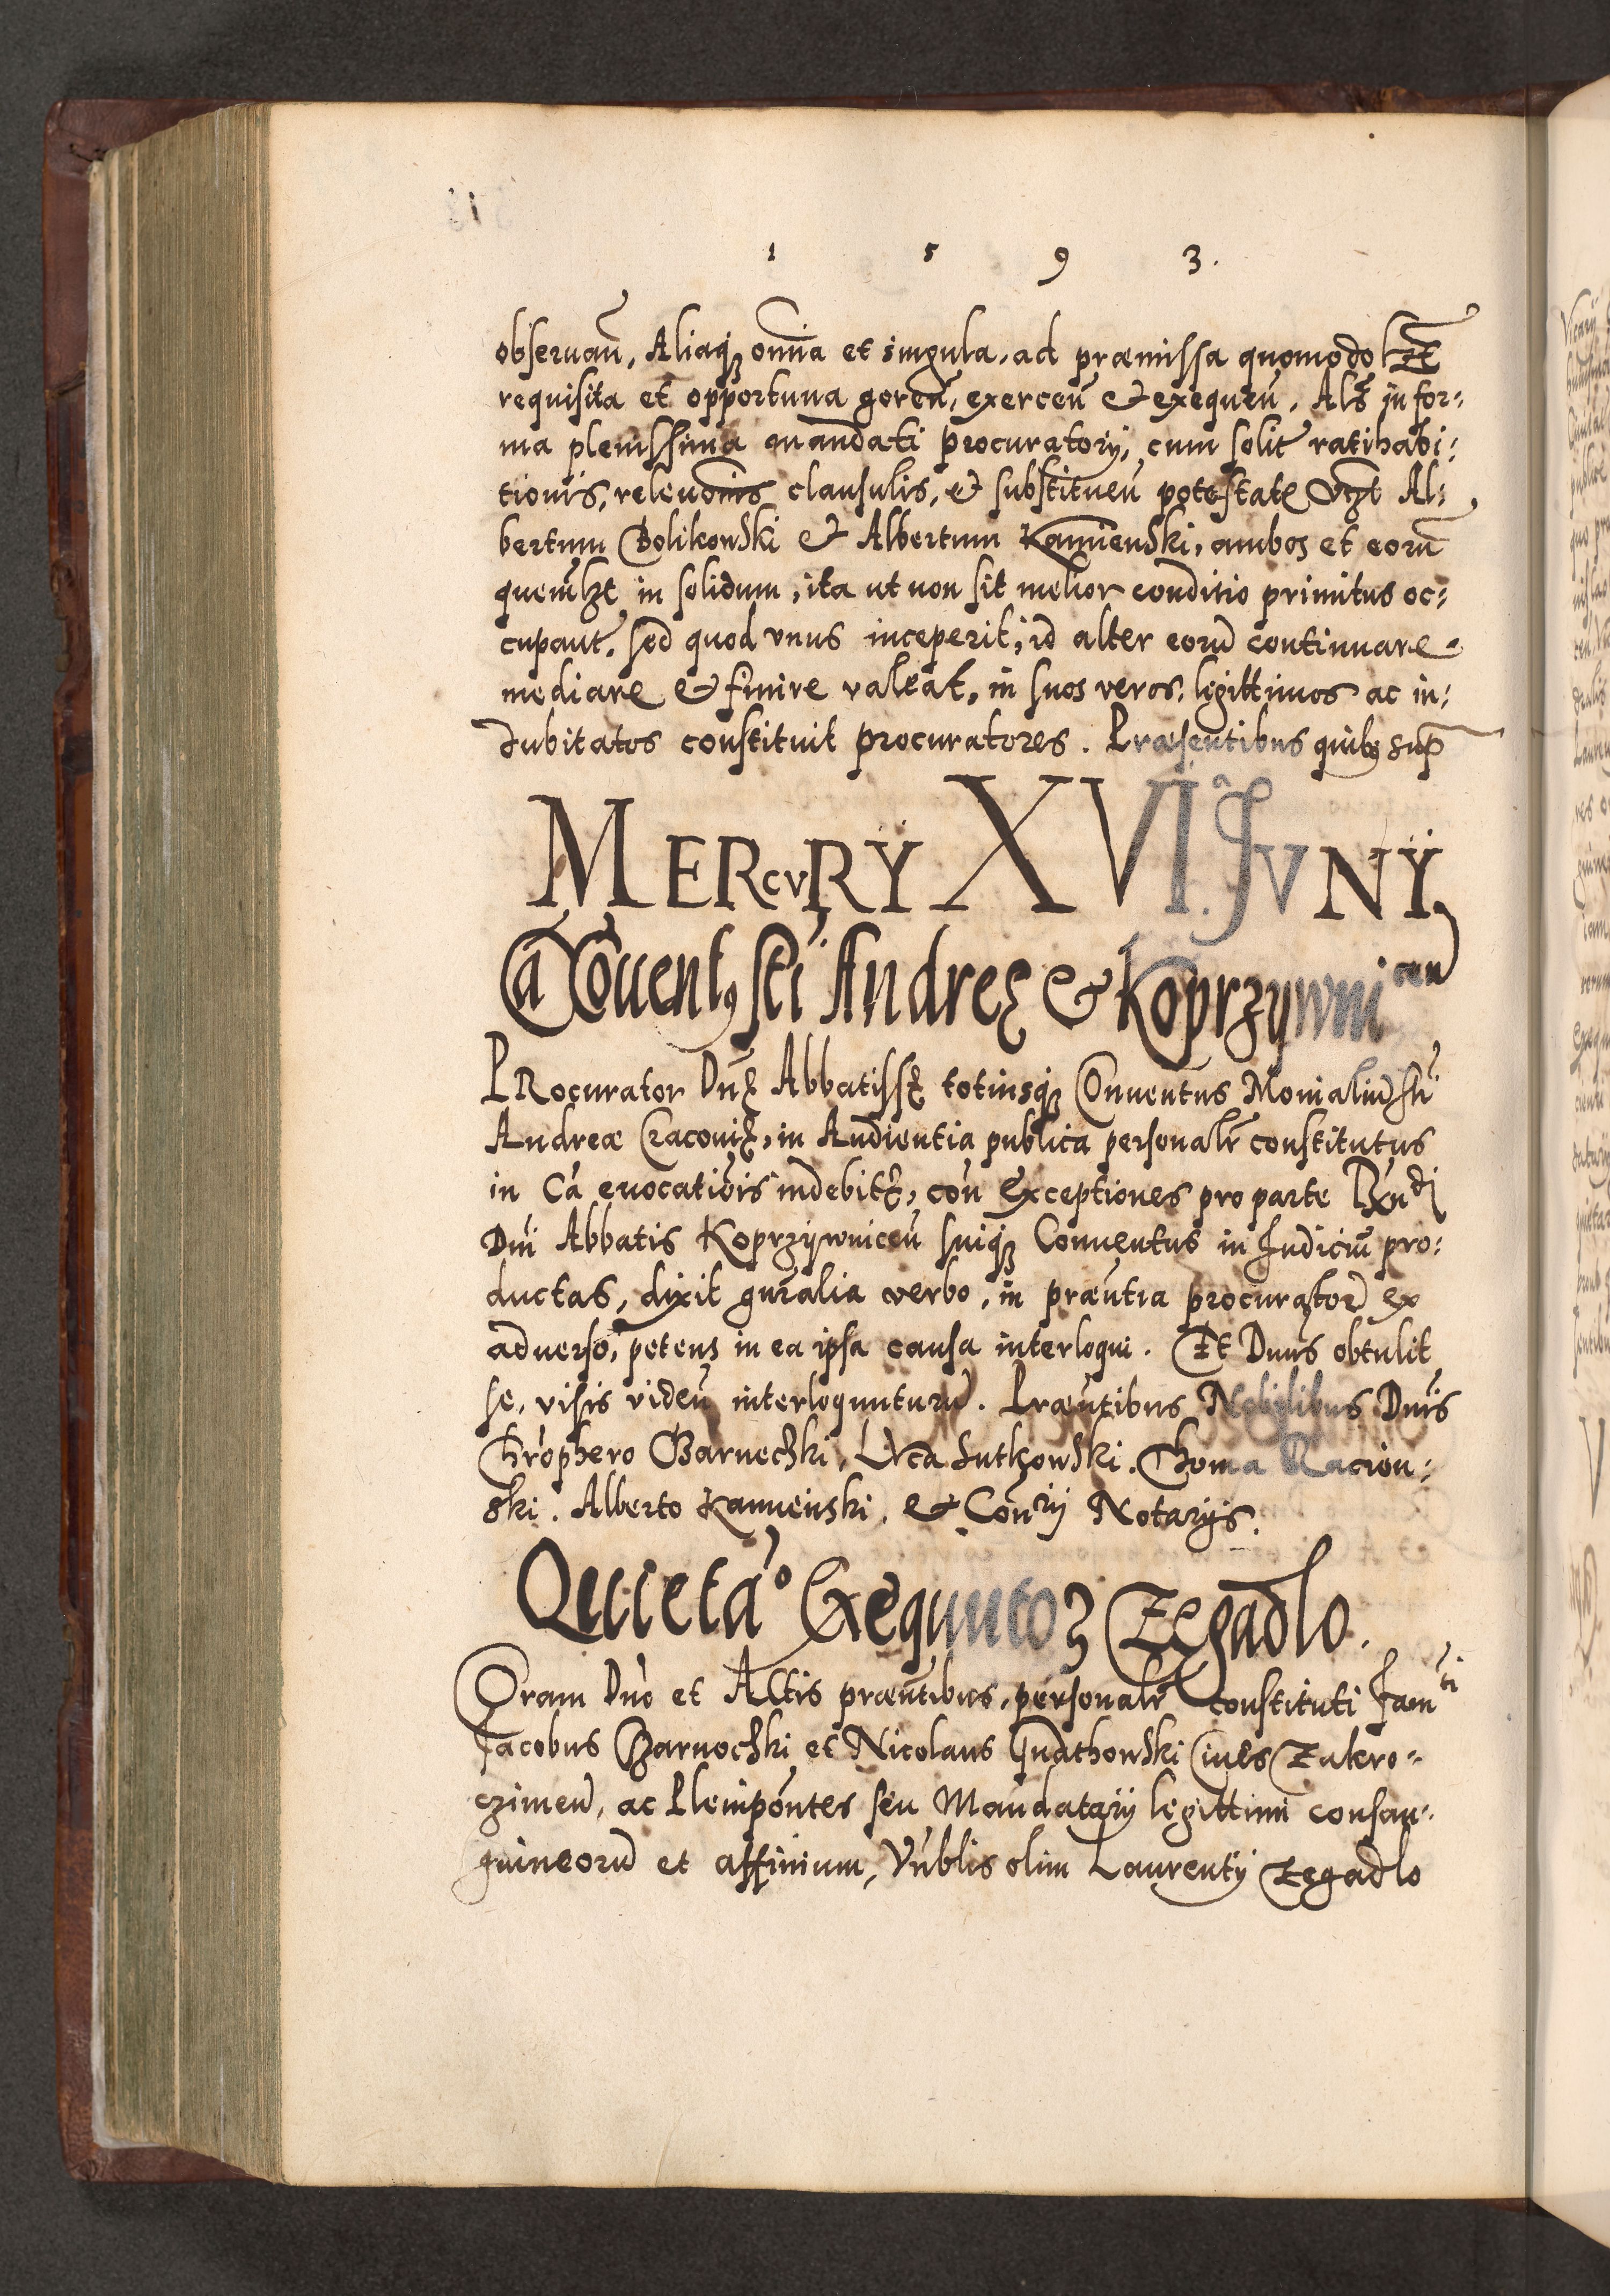 1 5 9 3.
obseruañ, Aliaqꝫ om̄ia et singula, ad præmissa quomodolꝫt
requisita et opportuna gereñ, exerceñ & exequeñ, Als̃ in for-
ma plenissima mandati procuratorij, cum solit̃ ratihabi-
tionis, releuõnis clausulis, & substitueñ potestate Vꝫt Al-
bertum Bolikowski & Albertum Kamienski, ambos et eorũ
quemlꝫt in solidum, ita ut non sit melior conditio primitus oc-
cupant̃, sed quod vnus inceperit, id alter eorũ continuare
mediare & finire valeat, in suos veros, legittimos ac in-
dubitatos constituit procuratores. Præsentibus quibꝰ sup̃
MERCVRŸ XVI JVNŸ
Cã Cõuentꝰ sti Andreę & Koprzywnicen
PRocurator Dnę Abbatissę totiusqꝫ Conuentus Monialiũ sti
Andreæ Cracouię, in Audientia publica personalr̃ constitutus
in Cã euocatiõis indebitę, con̄ Exceptiones pro parte Rxndi
Dni Abbatis Koprzywniceñ suiqꝫ Conuentus in Judiciũ pro-
ductas, dixit gnralia verbo, in præntia procurator̃ ex
aduerso, petens in ea ipsa causa interloqui. Et Dnus obtulit
se, visis videñ interloquuturũ. Præntibus Nobilibus Dnis
Chrophero Barnechki, Luca Lutkowski. Thoma Racion-
ski. Alberto Kamieński, & Conrij Notarijs.
Quietão Exequutoꝝ Zegadlo.
Coram Dno et Actis præntibus, personalr̃ constituti Famti
Jacobus Barnochki et Nicolaus Gnathowski Ciues Zakro-
czimeñ, ac Plenipõntes seu Mandatarij legittimi consan-
guineorũ et affinium, Vnblis olim Laurentij Zegadlo